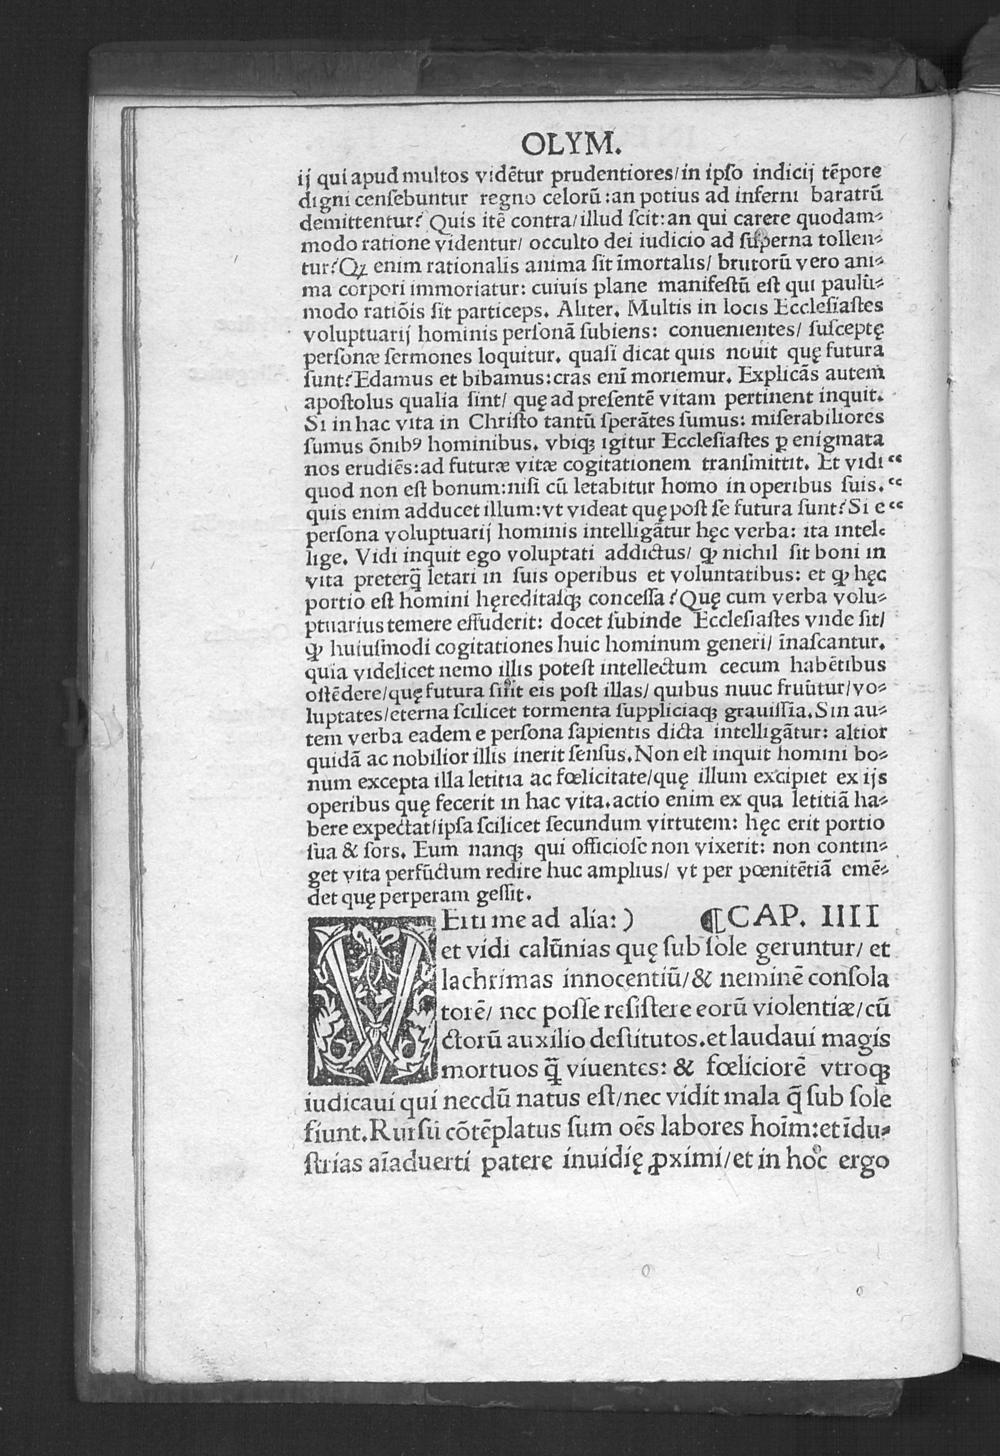 OLYM.
ij qui apud multos vidētur prudentiores/in ipſo indicij tēpore
digni cenſebuntur regno celorū:an potius ad inferni baratrū
demittentur? Quis itē contra/illud ſcit:an qui carere quodam⸗
modo ratione videntur/ occulto dei iudicio ad ſuperna tollen⸗
tur? Qꝫ enim rationalis anima ſit īmortalis/ brutorū vero ani⸗
ma corpori immoriatur: cuiuis plane manifeſtū eſt qui paulū⸗
modo ratiōis ſit particeps. Aliter. Multis in locis Eccleſiaſtes
voluptuarij hominis perſonā ſubiens: conuenientes/ ſuſceptę
perſonæ ſermones loquitur. quaſi dicat quis nouit quę futura
ſunt? Edamus et bibamus:cras eni̅ moriemur. Explicās autem
apoſtolus qualia ſint/ quę ad preſentē vitam pertinent inquit.
Si in hac vita in Chriſto tantū ſperātes ſumus: miſerabiliores
ſumus ōnibꝰ hominibus. vbiqꝫ igitur Eccleſiaſtes ꝑ enigmata
nos erudiēs:ad futuræ vitæ cogitationem tranſmittit. Et vidi “
quod non eſt bonum:niſi cū letabitur homo in operibus ſuis. “
quis enim adducet illum:vt videat quę poſt ſe futura ſunt? Si e “
perſona voluptuarij hominis intelligātur hęc verba: ita intel⸗
lige. Vidi inquit ego voluptati addictus/ ꝙ nichil ſit boni in
vita preterq̄ letari in ſuis operibus et voluntatibus: et ꝙ hęc
portio eſt homini hęreditaſqꝫ conceſſa? Quę cum verba volu⸗
ptuarius temere effuderit: docet ſubinde Eccleſiaſtes vnde ſit/
ꝙ huiuſmodi cogitationes huic hominum generi/ īnaſcantur.
quia videlicet nemo illis poteſt intellectum cecum habētibus
oſtēdere/quę futura ſint eis poſt illas/ quibus nuuc fruūtur/vo⸗
luptates/eterna ſcilicet tormenta ſuppliciaqꝫ grauiſſia. Sin au⸗
tem verba eadem e perſona ſapientis dicta intelligātur: altior
quidā ac nobilior illis inerit ſenſus. Non eſt inquit homini bo⸗
num excepta illa letitia ac fœlicitate/quę illum excipiet ex ijs
operibus quę fecerit in hac vita. actio enim ex qua letitiā ha⸗
bere expectat/ipſa ſcilicet ſecundum virtutem: hęc erit portio
ſua & ſors. Eum nanqꝫ qui officioſe non vixerit: non contin⸗
get vita perfūctum redire huc amplius/ vt per pœnitētiā emē⸗
det quę perperam geſſit.
VErti me ad alia:) ¶CAP. IIII
et vidi calūnias quę ſub ſole geruntur/ et
lachrimas innocentiū/& neminē conſola
torē/ nec poſſe reſiſtere eorū violentiæ/cū
ctorū auxilio deſtitutos. et laudaui magis
mortuos q̄ viuentes: & fœliciorē vtroqꝫ
iudicaui qui necdū natus eſt/nec vidit mala q̄ ſub ſole
fiunt. Rurſū cōtēplatus ſum oēs labores hoīm:et īdu⸗
ſtrias aīaduerti patere inuidię ꝓximi/et in hoc ergo